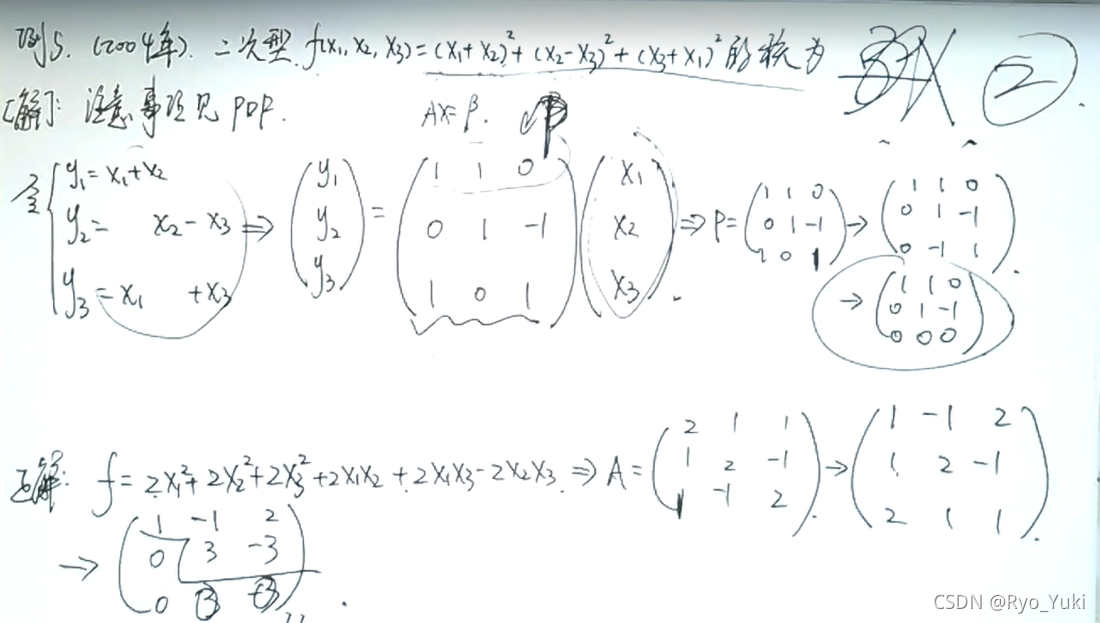 例5. (2004年). 二次型 f(x₁, x₂, x₃) = (x₁+x₂)² + (x₂-x₃)² + (x₃+x₁)² 的秩为 ②.
[解]: 注意事项见 PDF. Ax=β.
令 { y₁= x₁+x₂
y₂= x₂-x₃
y₃=x₁ +x₃
⇒ (y₁ y₂ y₃) = (1 1 0
0 1 -1
1 0 1) (x₁ x₂ x₃).
⇒ P= (1 1 0
0 1 -1
1 0 1)
→ (1 1 0
0 1 -1
0 -1 1).
→ (1 1 0
0 1 -1
0 0 0)
正解: f= 2x₁²+2x₂²+2x₃²+2x₁x₂+2x₁x₃-2x₂x₃. ⇒ A= (2 1 1
1 2 -1
1 -1 2).
→ (1 -1 2
1 2 -1
2 1 1).
→ (1 -1 2
0 3 -3
0 3 -3).
CSDN @Ryo_Yuki